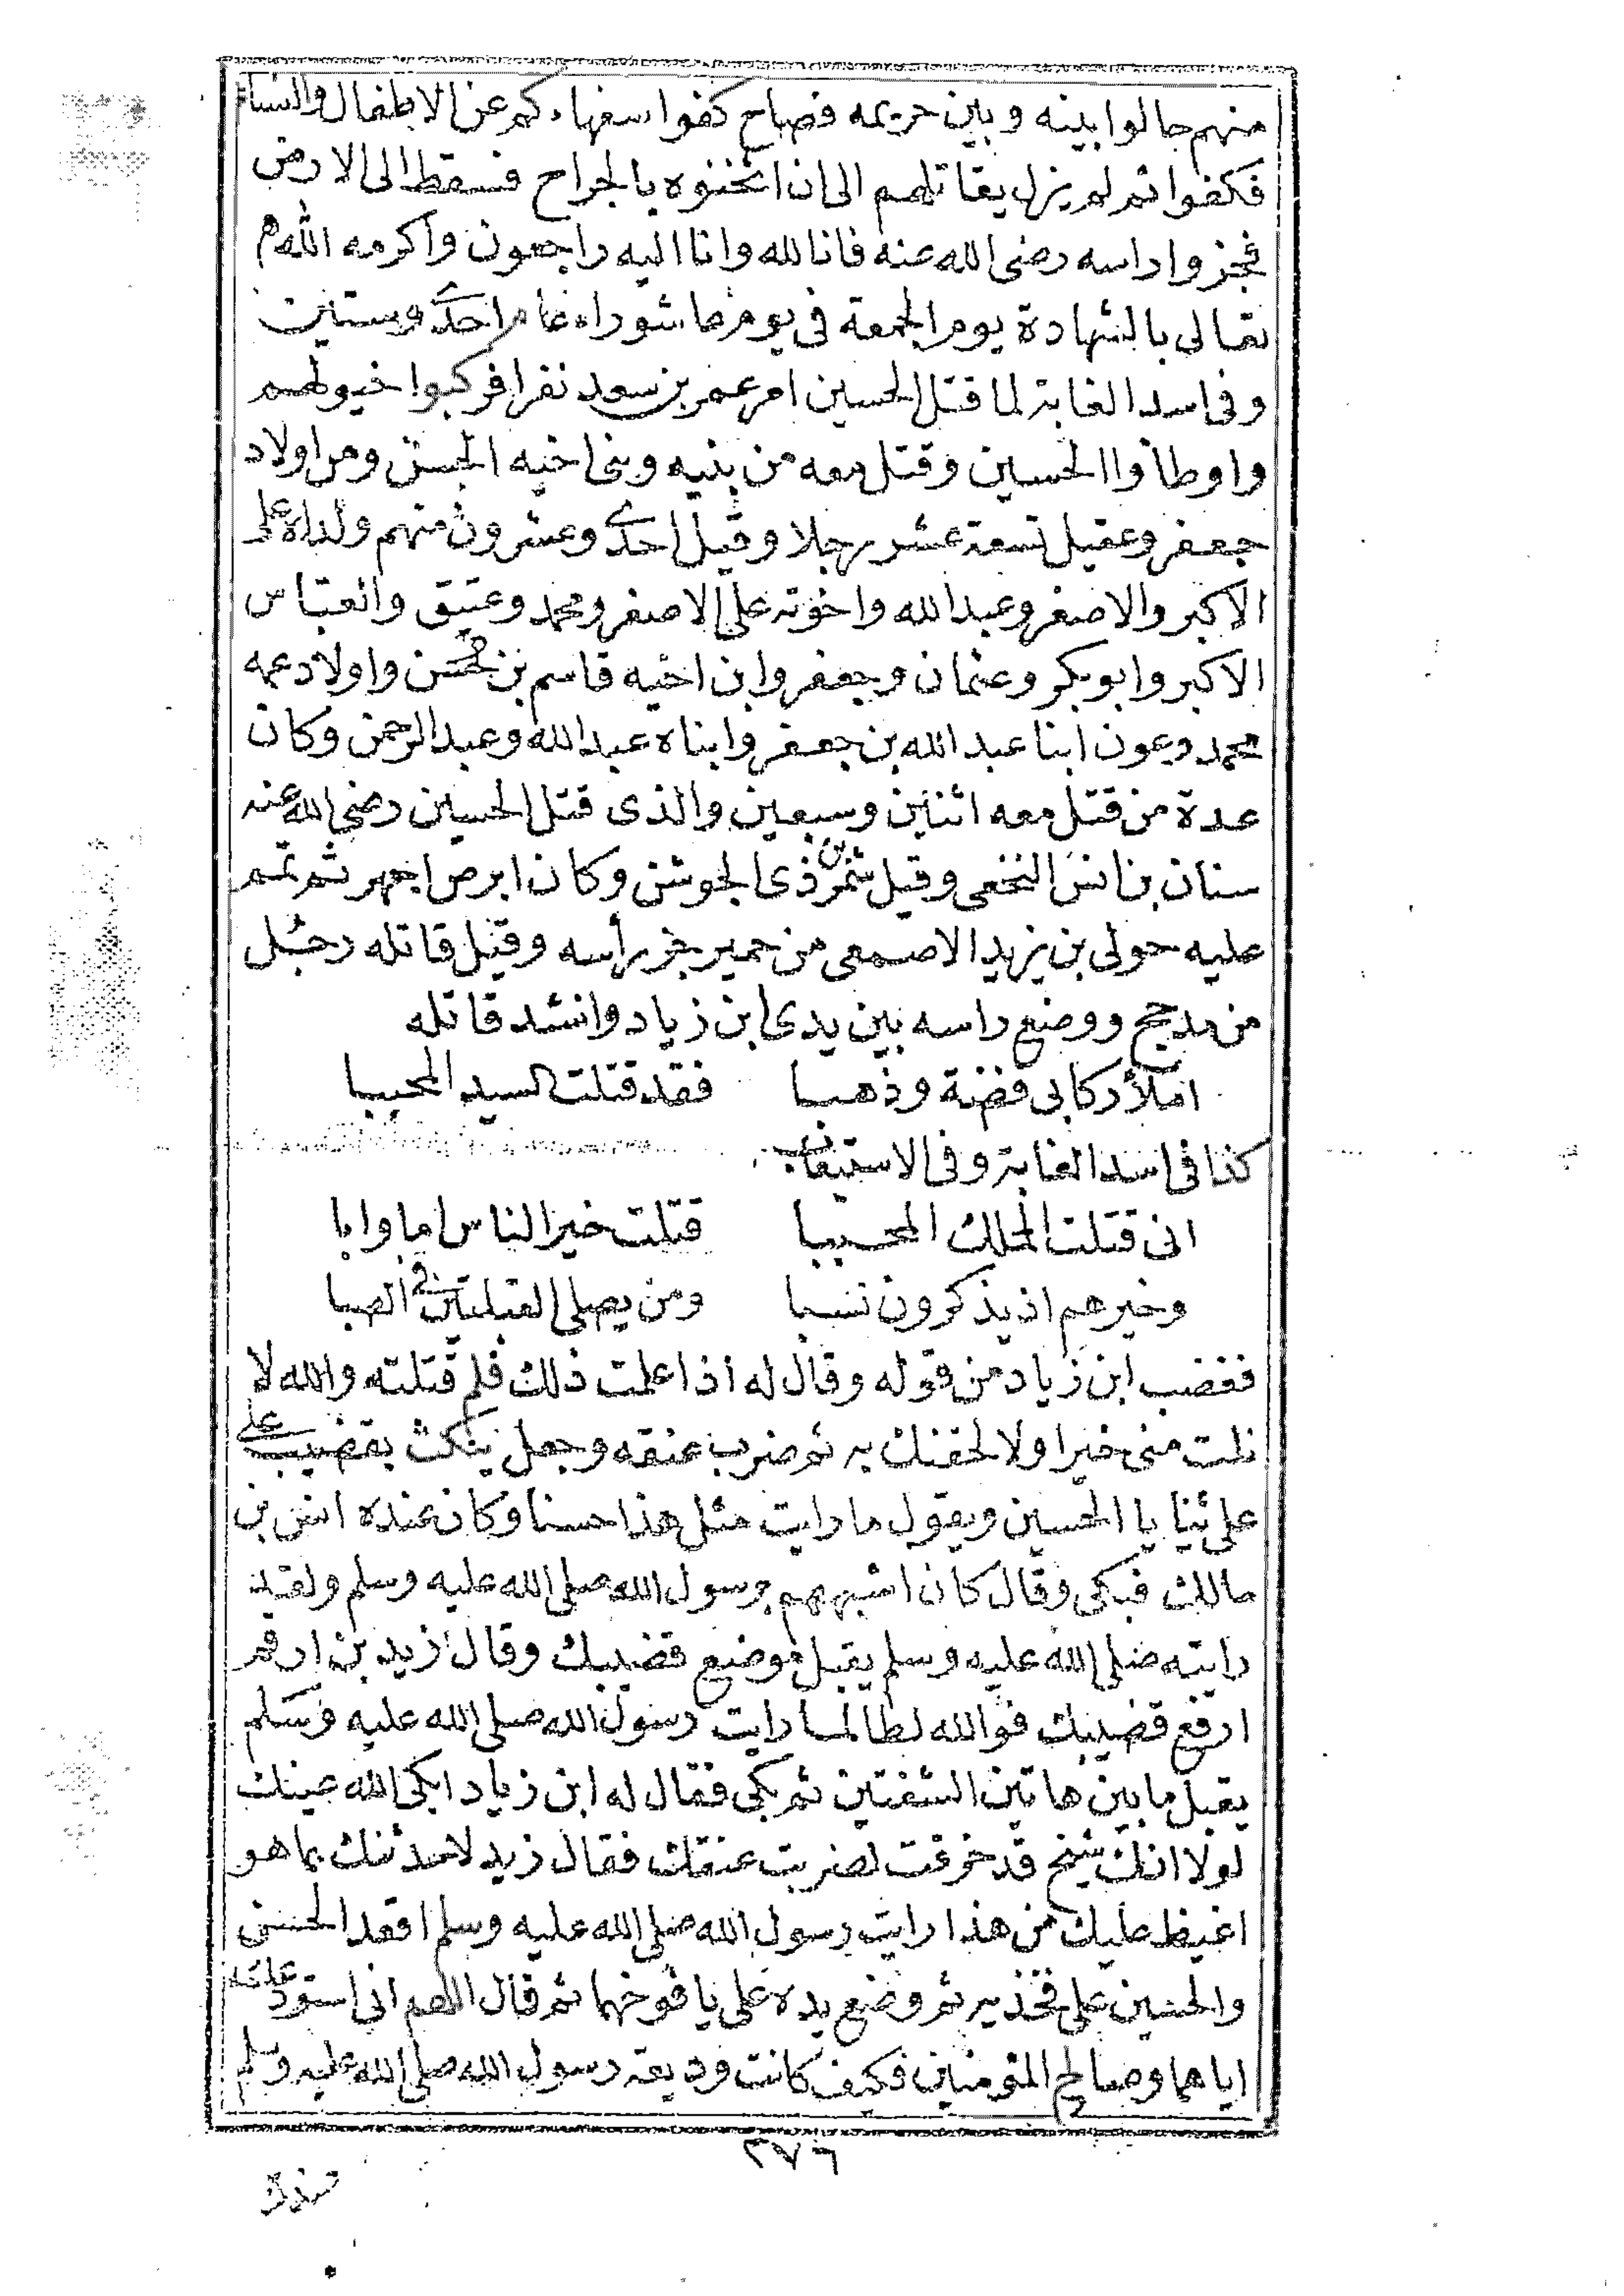 منهم حالوا بينه وبين حريمه فصاح كفوا سفهاءكم عن الاطفال والنساء
فكفوا ثم لم يزل يقاتلهم الى ان اثخنوه بالجراح فسقط الى الارض
فجزوا راسه رضى الله عنه فانا لله وانا اليه راجعون واكرمه الله
تعالى بالشهادة يوم الجمعة فى يوم عاشوراء عام احدى وستين
وفى اسد الغابة لما قتل الحسين امر عمر بن سعد نفرا فركبوا خيولهم
واوطأوا الحسين وقتل معه من بنيه وبنى اخيه الحسن ومن اولاد
جعفر وعقيل تسعة عشر رجلا وقيل احدى وعشرون منهم ولداه على
الاكبر والاصغر وعبد الله واخوته على الاصغر ومحمد وعتيق والعباس
الاكبر وابو بكر وعثمان وجعفر وابن اخيه قاسم بن حسن واولاد عمه
محمد وعون ابنا عبد الله بن جعفر وابناه عبد الله وعبد الرحمن وكان
عدة من قتل معه اثنين وسبعين والذى قتل الحسين رضى الله عنه
سنان بن انس النخعى وقيل شمر بن ذى الجوشن وكان ابرص اجهر ثم تمم
عليه حولى بن يزيد الاصمعى من حمير جز رأسه وقيل قاتله رجل
من مدحج ووضع راسه بين يدى ابن زياد وانشد قاتله
املأ ركابى فضة وذهبا فقد قتلت السيد المحببا
كذا فى اسد الغابة وفى الاستيعاب
انى قتلت الملك المحببا قتلت خير الناس اما وابا
وخيرهم اذ يذكرون نسبا ومن يصلى القبلتين فى الصبا
فغضب ابن زياد من قوله وقال له اذا علمت ذلك فلم قتلته والله لا
نلت منى خيرا ولا لحقنك به ثم ضرب عنقه وجعل ينكث بقضيب على
على ثنايا الحسين ويقول ما رايت مثل هذا حسنا وكان عنده انس بن
مالك فبكى وقال كان اشبههم برسول الله صلى الله عليه وسلم ولقد
رايته صلى الله عليه وسلم يقبل موضع قضيبك وقال زيد بن ارقم
ارفع قضيبك فوالله لطالما رايت رسول الله صلى الله عليه وسلم
يقبل ما بين هاتين الشفتين ثم بكى فقال له ابن زياد ابكى الله عينك
لولا انك شيخ قد خرفت لضربت عنقك فقال زيد لاحدثنك بما هو
اغيظ عليك من هذا رايت رسول الله صلى الله عليه وسلم اقعد الحسن
والحسين على فخذيه ثم وضع يده على يافوخهما ثم قال اللهم انى استودعك
اياهما وصالح المؤمنين فكيف كانت وديعة رسول الله صلى الله عليه وسلم
٣٧٦